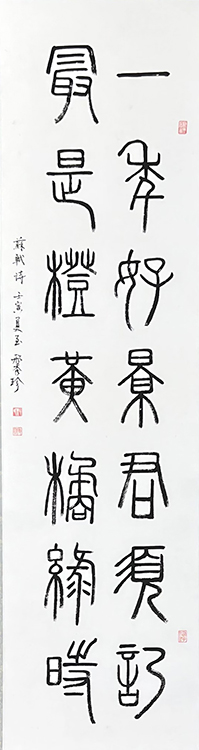 一年好景君須記
最是橙黃橘綠時
蘇軾詩 壬寅夏至